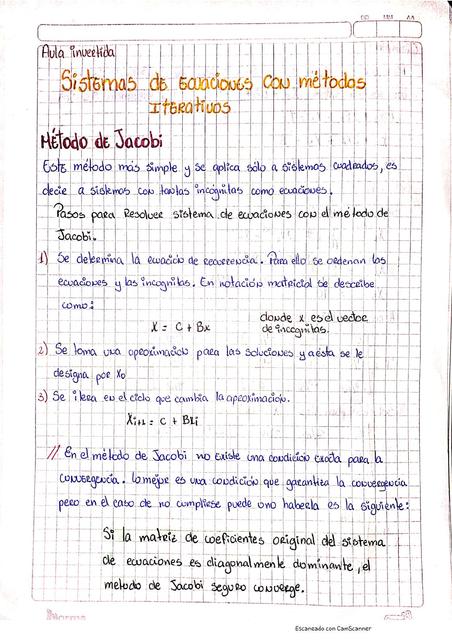 DD MM AA
Aula invertida
Sistemas de Ecuaciones con métodos
Iterativos
Método de Jacobi
Este método más simple y se aplica sólo a sistemas cuadrados, es
decir a sistemas con tantas incógnitas como ecuaciones.
Pasos para Resolver sistema de ecuaciones con el método de
Jacobi.
1) Se determina la ecuación de recurrencia. Para ello se ordenan las
ecuaciones y las incognitas. En notación matricial se describe
como:
X = C + Bx donde x es el vector
de incognitas.
2) Se toma una aproximación para las soluciones y a ésta se le
designa por X₀
3) Se itera en el ciclo que cambia la aproximación.
Xᵢ₊₁ = C + BXᵢ
// En el método de Jacobi no existe una condición exacta para la
convergencia. Lo mejor es una condición que garantiza la convergencia
pero en el caso de no cumplirse puede uno haberla es la siguiente:
Si la matriz de coeficientes original del sistema
de ecuaciones es diagonalmente dominante, el
metodo de Jacobi seguro converge.
Norma
Escaneado con CamScanner